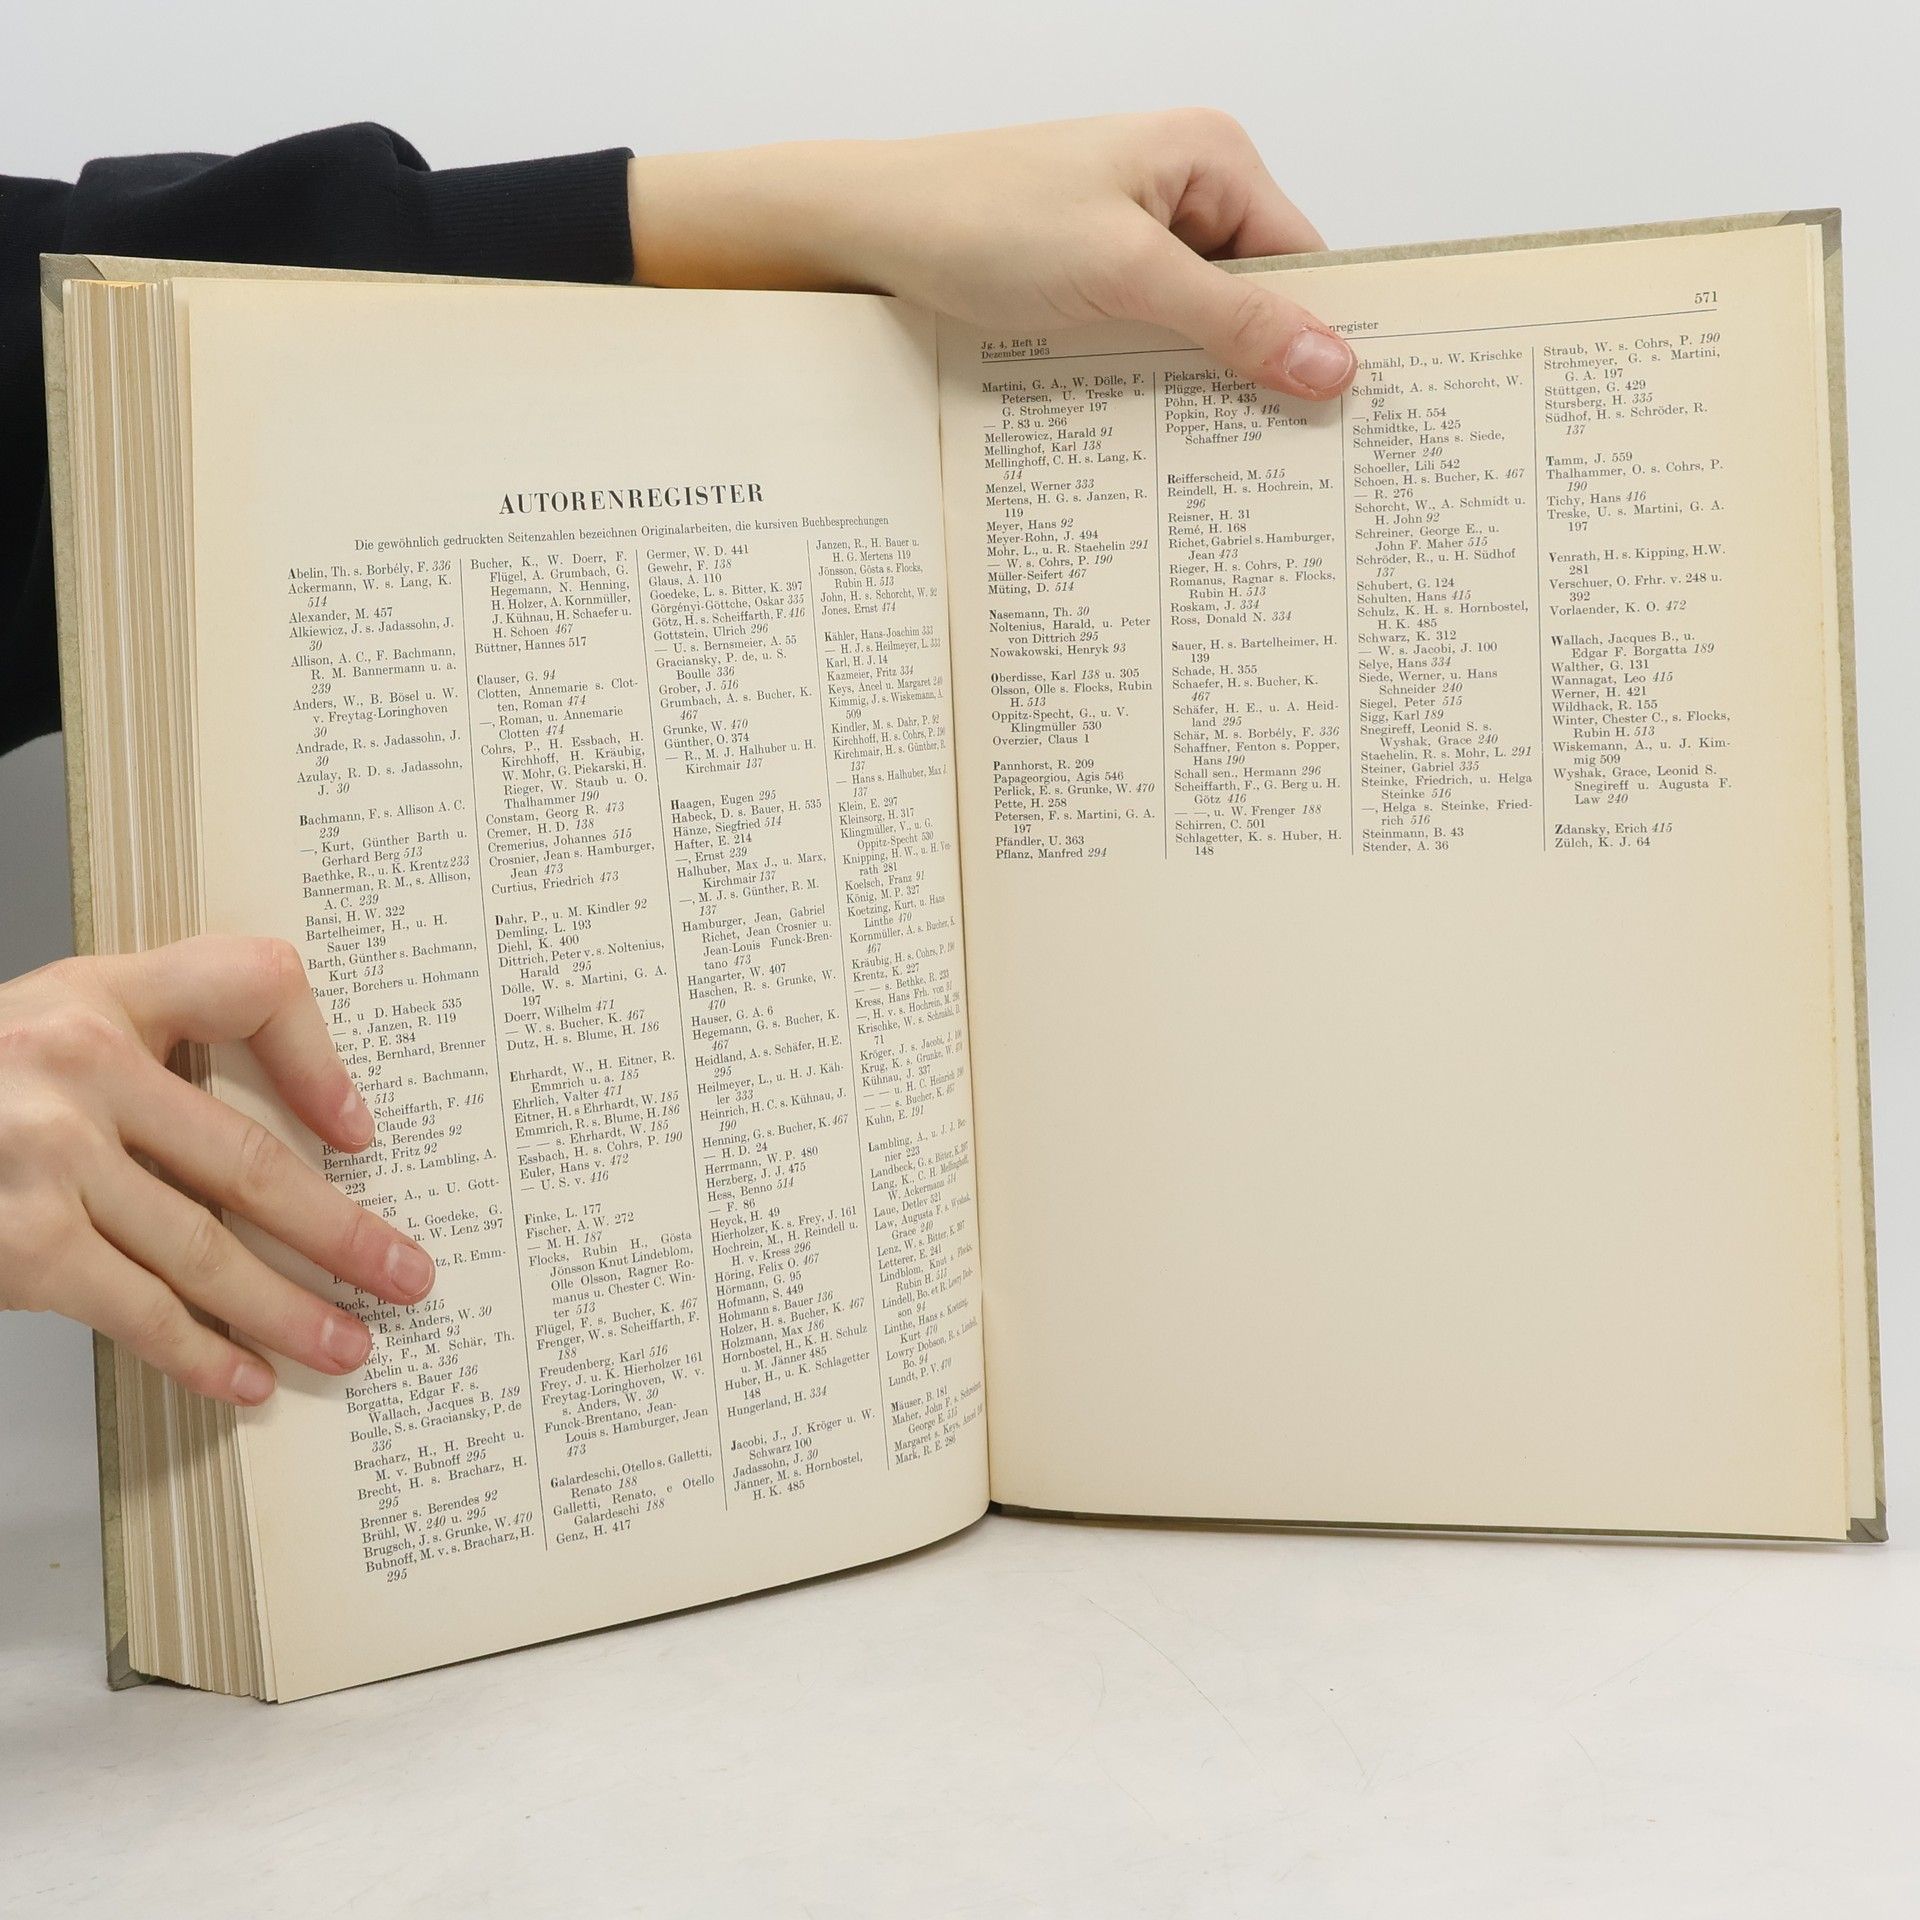 AUTORENREGISTER
Die gewöhnlich gedruckten Seitenzahlen bezeichnen Originalarbeiten, die kursiven Buchbesprechungen
Abelin, Th. s. Borbély, F. 336
Ackermann, W. s. Lang, K.
514
Alexander, M. 457
Alkiewicz, J. s. Jadassohn, J.
30
Allison, A. C., F. Bachmann,
R. M. Bannermann u. a.
239
Anders, W., B. Bösel u. W.
v. Freytag-Loringhoven
30
Andrade, R. s. Jadassohn, J.
30
Azulay, R. D. s. Jadassohn,
J. 30
Bachmann, F. s. Allison A. C.
239
—, Kurt, Günther Barth u.
Gerhard Berg 513
Baethke, R., u. K. Krentz 233
Bannerman, R. M., s. Allison,
A. C. 239
Bansi, H. W. 322
Bartelheimer, H., u. H.
Sauer 139
Barth, Günther s. Bachmann,
Kurt 513
Bauer, Borchers u. Hohmann
136
H., u D. Habeck 535
— s. Janzen, R. 119
P. E. 384
Bernhard, Brenner
a. 92
Gerhard s. Bachmann,
513
Scheiffarth, F. 416
Claude 93
Berendes 92
Bernhardt, Fritz 92
Bernier, J. J. s. Lambling, A.
223
A., u. U. Gott-
55
L. Goedeke, G.
u. W. Lenz 397
R. Emm-
G. 515
B. s. Anders, W. 30
Reinhard 93
F., M. Schär, Th.
Abelin u. a. 336
Borchers s. Bauer 136
Borgatta, Edgar F. s.
Wallach, Jacques B. 189
Boulle, S. s. Graciansky, P. de
336
Bracharz, H., H. Brecht u.
M. v. Bubnoff 295
Brecht, H. s. Bracharz, H.
295
Brenner s. Berendes 92
Brühl, W. 240 u. 295
Brugsch, J. s. Grunke, W. 470
Bubnoff, M. v. s. Bracharz, H.
295
Bucher, K., W. Doerr, F.
Flügel, A. Grumbach, G.
Hegemann, N. Henning,
H. Holzer, A. Kornmüller,
J. Kühnau, H. Schaefer u.
H. Schoen 467
Büttner, Hannes 517
Clauser, G. 94
Clotten, Annemarie s. Clot-
ten, Roman 474
—, Roman, u. Annemarie
Clotten 474
Cohrs, P., H. Essbach, H.
Kirchhoff, H. Kräubig,
W. Mohr, G. Piekarski, H.
Rieger, W. Staub u. O.
Thalhammer 190
Constam, Georg R. 473
Cremer, H. D. 138
Cremerius, Johannes 515
Crosnier, Jean s. Hamburger,
Jean 473
Curtius, Friedrich 473
Dahr, P., u. M. Kindler 92
Demling, L. 193
Diehl, K. 400
Dittrich, Peter v. s. Noltenius,
Harald 295
Dölle, W. s. Martini, G. A.
197
Doerr, Wilhelm 471
— W. s. Bucher, K. 467
Dutz, H. s. Blume, H. 186
Ehrhardt, W., H. Eitner, R.
Emmrich u. a. 185
Ehrlich, Valter 471
Eitner, H. s Ehrhardt, W. 185
Emmrich, R. s. Blume, H. 186
— — s. Ehrhardt, W. 185
Essbach, H. s. Cohrs, P. 190
Euler, Hans v. 472
— U. S. v. 416
Finke, L. 177
Fischer, A. W. 272
— M. H. 187
Flocks, Rubin H., Gösta
Jönsson Knut Lindeblom,
Olle Olsson, Ragner Ro-
manus u. Chester C. Win-
ter 513
Flügel, F. s. Bucher, K. 467
Frenger, W. s. Scheiffarth, F.
188
Freudenberg, Karl 516
Frey, J. u. K. Hierholzer 161
Freytag-Loringhoven, W. v.
s. Anders, W. 30
Funck-Brentano, Jean-
Louis s. Hamburger, Jean
473
Galardeschi, Otello s. Galletti,
Renato 188
Galletti, Renato, e Otello
Galardeschi 188
Genz, H. 417
Germer, W. D. 441
Gewehr, F. 138
Glaus, A. 110
Goedeke, L. s. Bitter, K. 397
Görgényi-Göttche, Oskar 335
Götz, H. s. Scheiffarth, F. 416
Gottstein, Ulrich 296
— U. s. Bernsmeier, A. 55
Graciansky, P. de, u. S.
Boulle 336
Grober, J. 516
Grumbach, A. s. Bucher, K.
467
Grunke, W. 470
Günther, O. 374
— R., M. J. Halhuber u. H.
Kirchmair 137
Haagen, Eugen 295
Habeck, D. s. Bauer, H. 535
Hänze, Siegfried 514
Hafter, E. 214
—, Ernst 239
Halhuber, Max J., u. Marx,
Kirchmair 137
—, M. J. s. Günther, R. M.
137
Hamburger, Jean, Gabriel
Richet, Jean Crosnier u.
Jean-Louis Funck-Bren-
tano 473
Hangarter, W. 407
Haschen, R. s. Grunke, W.
470
Hauser, G. A. 6
Hegemann, G. s. Bucher, K.
467
Heidland, A. s. Schäfer, H. E.
295
Heilmeyer, L., u. H. J. Käh-
ler 333
Heinrich, H. C. s. Kühnau, J.
190
Henning, G. s. Bucher, K. 467
— H. D. 24
Herrmann, W. P. 480
Herzberg, J. J. 475
Hess, Benno 514
— F. 86
Heyck, H. 49
Hierholzer, K. s. Frey, J. 161
Hochrein, M., H. Reindell u.
H. v. Kress 296
Höring, Felix O. 467
Hörmann, G. 95
Hofmann, S. 449
Hohmann s. Bauer 136
Holzer, H. s. Bucher, K. 467
Holzmann, Max 186
Hornbostel, H., K. H. Schulz
u. M. Jänner 485
Huber, H., u. K. Schlagetter
148
Hungerland, H. 334
Jacobi, J., J. Kröger u. W.
Schwarz 100
Jadassohn, J. 30
Jänner, M. s. Hornbostel,
H. K. 485
Janzen, R., H. Bauer u.
H. G. Mertens 119
Jönsson, Gösta s. Flocks,
Rubin H. 513
John, H. s. Schorcht, W. 92
Jones, Ernst 474
Kähler, Hans-Joachim 333
— H. J. s. Heilmeyer, L. 333
Karl, H. J. 14
Kazmeier, Fritz 334
Keys, Ancel u. Margaret 240
Kimmig, J. s. Wiskemann, A.
509
Kindler, M. s. Dahr, P. 92
Kirchhoff, H. s. Cohrs, P. 190
Kirchmair, H. s. Günther, R.
137
— Hans s. Halhuber, Max J.
137
Klein, E. 297
Kleinsorg, H. 317
Klingmüller, V., u. G.
Oppitz-Specht 530
Knipping, H. W., u. H. Ven-
rath 281
Koelsch, Franz 91
König, M. P. 327
Koetzing, Kurt, u. Hans
Linthe 470
Kornmüller, A. s. Bucher, K.
467
Kräubig, H. s. Cohrs, P. 190
Krentz, K. 227
— — s. Bethke, R. 233
Kress, Hans Frh. von 91
—, H. v. s. Hochrein, M. 296
Krischke, W. s. Schmähl, D.
71
Kröger, J. s. Jacobi, J. 100
Krug, K. s. Grunke, W. 470
Kühnau, J. 337
— — u. H. C. Heinrich 190
— — s. Bucher, K. 467
Kuhn, E. 191
Lambling, A., u. J. J. Ber-
nier 223
Landbeck, G. s. Bitter, K. 397
Lang, K., C. H. Mellinghoff,
W. Ackermann 514
Laue, Detlev 521
Law, Augusta F. s. Wyshak,
Grace 240
Lenz, W. s. Bitter, K. 397
Letterer, E. 241
Lindblom, Knut s. Flocks,
Rubin H. 513
Lindell, Bo. et R. Lowry Dob-
son 94
Linthe, Hans s. Koetzing,
Kurt 470
Lowry Dobson, R. s. Lindell,
Bo. 94
Lundt, P. V. 470
Mäuser, B. 181
Maher, John F. s. Schreiner,
George E. 515
Margaret s. Keys, Ancel 240
Mark, R. E. 286
571
Jg. 4, Heft 12
Dezember 1963
nregister
Martini, G. A., W. Dölle, F.
Petersen, U. Treske u.
G. Strohmeyer 197
— P. 83 u. 266
Mellerowicz, Harald 91
Mellinghof, Karl 138
Mellinghoff, C. H. s. Lang, K.
514
Menzel, Werner 333
Mertens, H. G. s. Janzen, R.
119
Meyer, Hans 92
Meyer-Rohn, J. 494
Mohr, L., u. R. Staehelin 291
— W. s. Cohrs, P. 190
Müller-Seifert 467
Müting, D. 514
Nasemann, Th. 30
Noltenius, Harald, u. Peter
von Dittrich 295
Nowakowski, Henryk 93
Oberdisse, Karl 138 u. 305
Olsson, Olle s. Flocks, Rubin
H. 513
Oppitz-Specht, G., u. V.
Klingmüller 530
Overzier, Claus 1
Pannhorst, R. 209
Papageorgiou, Agis 546
Perlick, E. s. Grunke, W. 470
Pette, H. 258
Petersen, F. s. Martini, G. A.
197
Pfändler, U. 363
Pflanz, Manfred 294
Piekarski, G.
Plügge, Herbert
Pöhn, H. P. 435
Popkin, Roy J. 416
Popper, Hans, u. Fenton
Schaffner 190
Reifferscheid, M. 515
Reindell, H. s. Hochrein, M.
296
Reisner, H. 31
Remé, H. 168
Richet, Gabriel s. Hamburger,
Jean 473
Rieger, H. s. Cohrs, P. 190
Romanus, Ragnar s. Flocks,
Rubin H. 513
Roskam, J. 334
Ross, Donald N. 334
Sauer, H. s. Bartelheimer, H.
139
Schade, H. 355
Schaefer, H. s. Bucher, K.
467
Schäfer, H. E., u. A. Heid-
land 295
Schär, M. s. Borbély, F. 336
Schaffner, Fenton s. Popper,
Hans 190
Schall sen., Hermann 296
Scheiffarth, F., G. Berg u. H.
Götz 416
— —, u. W. Frenger 188
Schirren, C. 501
Schlagetter, K. s. Huber, H.
148
chmähl, D., u. W. Krischke
71
Schmidt, A. s. Schorcht, W.
92
—, Felix H. 554
Schmidtke, L. 425
Schneider, Hans s. Siede,
Werner 240
Schoeller, Lili 542
Schoen, H. s. Bucher, K. 467
— R. 276
Schorcht, W., A. Schmidt u.
H. John 92
Schreiner, George E., u.
John F. Maher 515
Schröder, R., u. H. Südhof
137
Schubert, G. 124
Schulten, Hans 415
Schulz, K. H. s. Hornbostel,
H. K. 485
Schwarz, K. 312
— W. s. Jacobi, J. 100
Selye, Hans 334
Siede, Werner, u. Hans
Schneider 240
Siegel, Peter 515
Sigg, Karl 189
Snegireff, Leonid S. s.
Wyshak, Grace 240
Staehelin, R. s. Mohr, L. 291
Steiner, Gabriel 335
Steinke, Friedrich, u. Helga
Steinke 516
—, Helga s. Steinke, Fried-
rich 516
Steinmann, B. 43
Stender, A. 36
Straub, W. s. Cohrs, P. 190
Strohmeyer, G. s. Martini,
G. A. 197
Stüttgen, G. 429
Stursberg, H. 335
Südhof, H. s. Schröder, R.
137
Tamm, J. 559
Thalhammer, O. s. Cohrs, P.
190
Tichy, Hans 416
Treske, U. s. Martini, G. A.
197
Venrath, H. s. Kipping, H.W.
281
Verschuer, O. Frhr. v. 248 u.
392
Vorlaender, K. O. 472
Wallach, Jacques B., u.
Edgar F. Borgatta 189
Walther, G. 131
Wannagat, Leo 415
Werner, H. 421
Wildhack, R. 155
Winter, Chester C., s. Flocks,
Rubin H. 513
Wiskemann, A., u. J. Kim-
mig 509
Wyshak, Grace, Leonid S.
Snegireff u. Augusta F.
Law 240
Zdansky, Erich 415
Zülch, K. J. 64